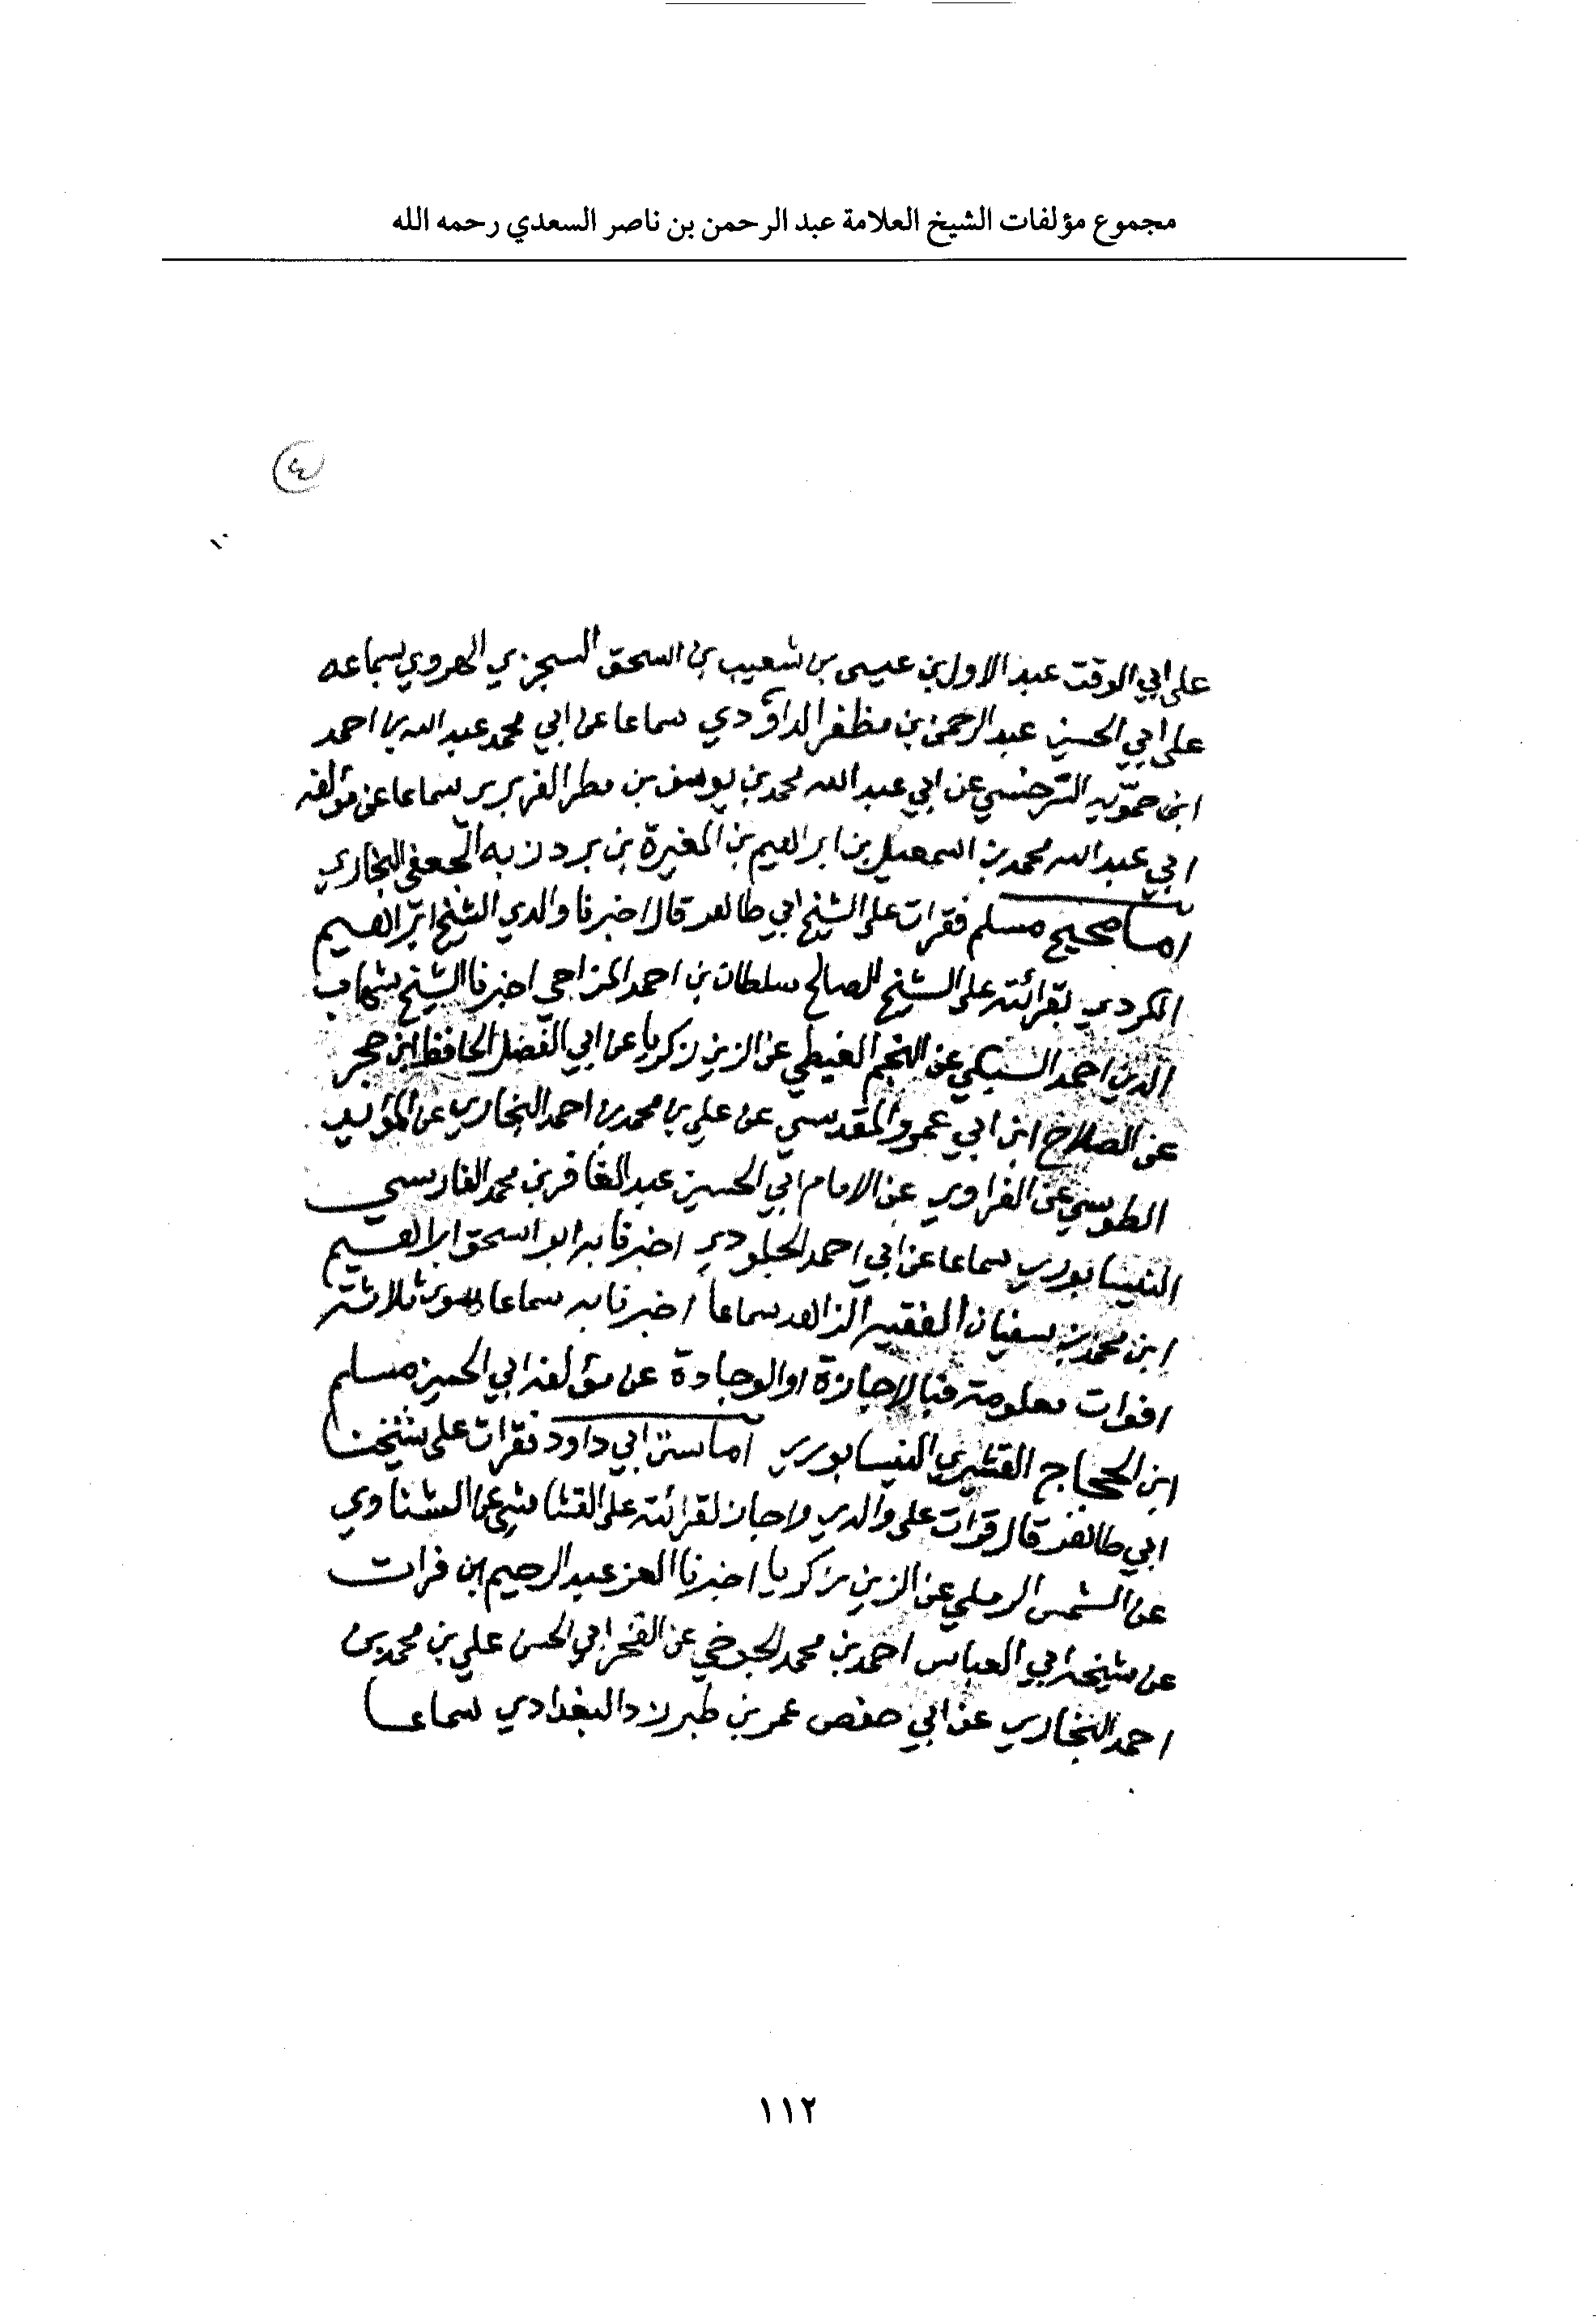 مجموع مؤلفات الشيخ العلامة عبد الرحمن بن ناصر السعدي رحمه الله
٤
١٠
على ابي الوقت عبد الاول بن عيسى بن شعيب بن اسحق السجزي الهروي بسماعه
على ابي الحسن عبد الرحمن بن مظفر الداؤدي سماعا عن ابي محمد عبد الله بن احمد
ابن حمّويه السرخسي عن ابي عبد الله محمد بن يوسف بن مطر الفربري سماعا عن مؤلفه
ابي عبد الله محمد بن اسمعيل بن ابراهيم بن المغيرة بن بردزبه الجعفي البخاري
اما صحيح مسلم فقرات على الشيخ ابي طاهر قال اخبرنا والدي الشيخ ابراهيم
الكردي بقرائته على الشيخ الصالح سلطان بن احمد المزاحي اخبرنا الشيخ شهاب
الدين احمد السبكي عن النجم الغيطي عن الزين زكريا عن ابي الفضل الحافظ ابن حجر
عن الصلاح ابن ابي عمرو المقدسي عن علي بن محمد بن احمد البخاري عن المؤيد
الطوسي عن الفراوي عن الامام ابي الحسين عبد الغافر بن محمد الفارسي
النيسابوري سماعا عن ابي احمد الجلودي اخبرنا به ابو اسحق ابراهيم
ابن محمد بن سفيان الفقيه الزاهد سماعا اخبرنا به سماعا سوى ثلاثة
افوات معلومة فبالاجازة او الوجادة عن مؤلفه ابي الحسين مسلم
ابن الحجاج القشيري النيسابوري اما سنن ابي داود فقرات على شيخنا
ابي طاهر قال قرات على والدي واجاز لقرائته على القشاشي عن الشناوي
عن الشمس الرملي عن الزين زكريا اخبرنا العز عبد الرحيم بن فرات
عن شيخه ابي العباس احمد بن محمد الجوخي عن الفخر ابي الحسن علي بن محمد بن
احمد البخاري عن ابي حفص عمر بن طبرزد البغدادي سماعا
١١٢